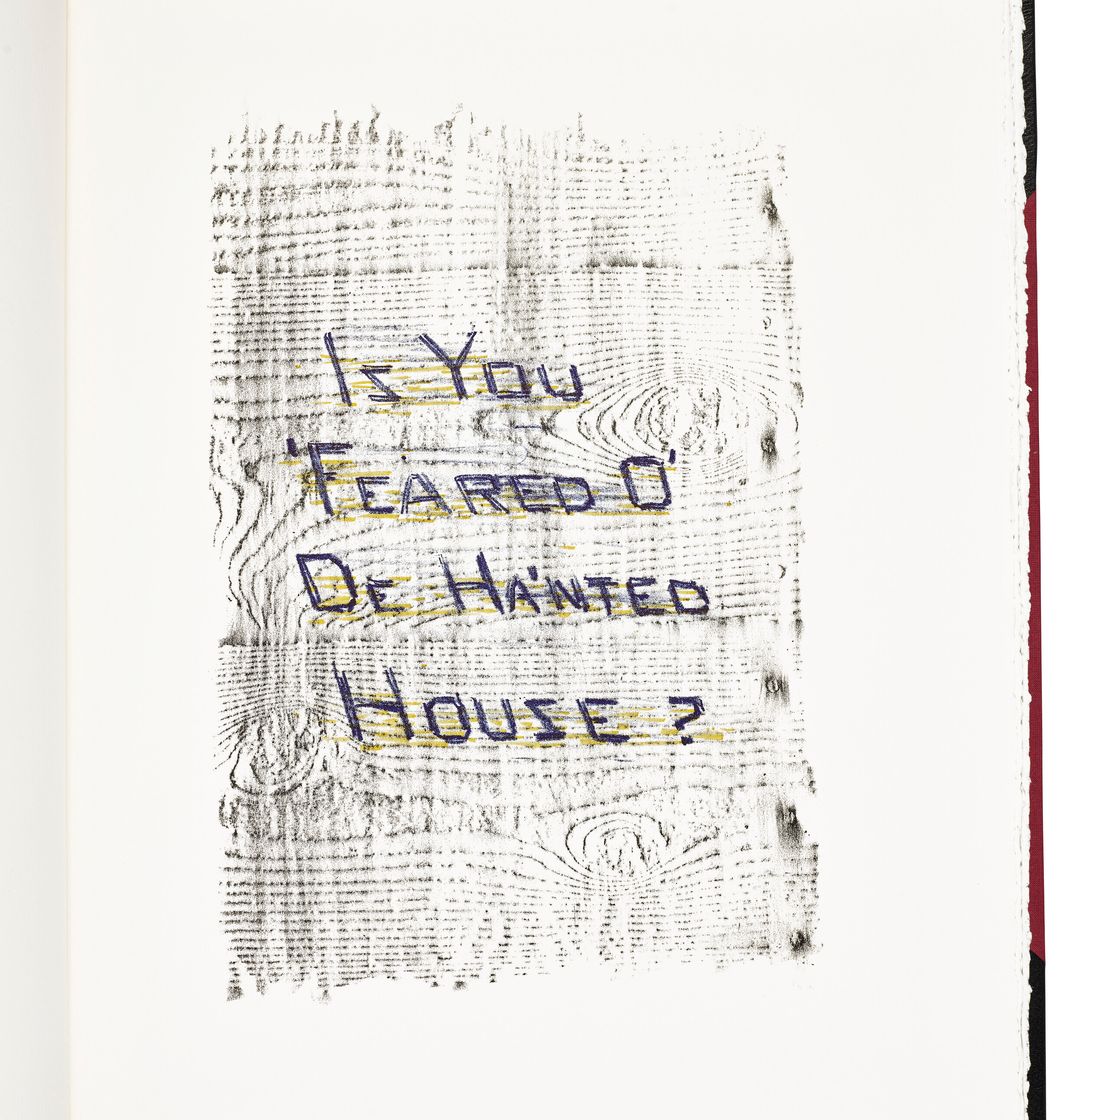 Is You
'Feared O'
De Ha'nted
House?